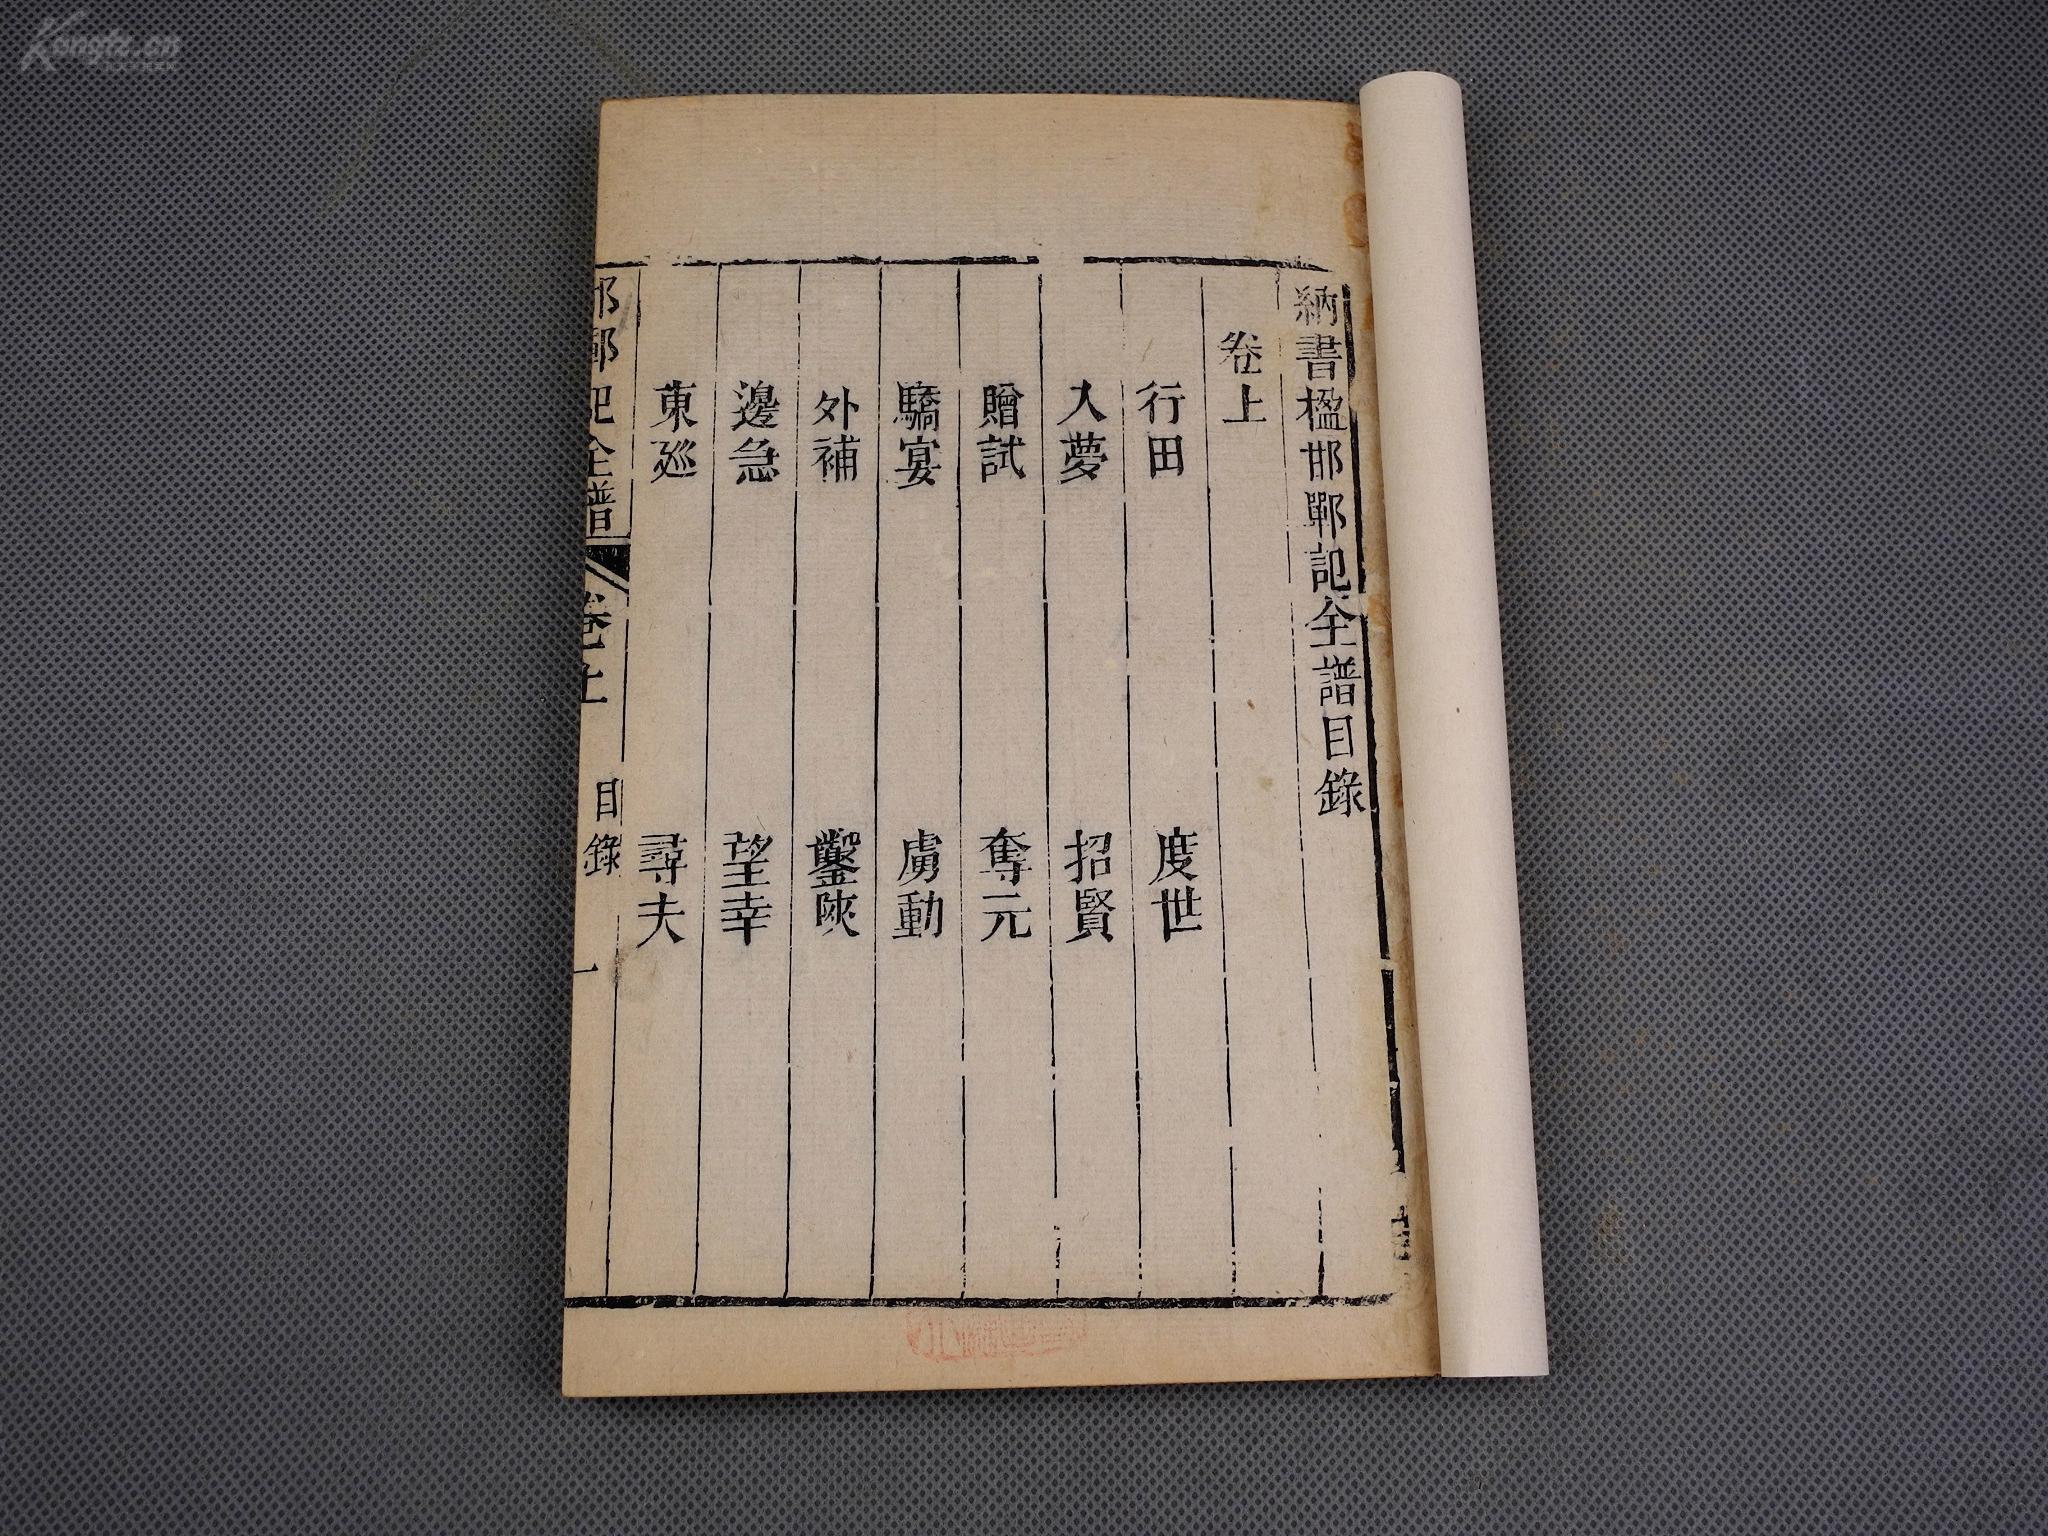 納書楹邯鄲記全譜目錄
卷上
行田 度世
入夢 招賢
贈試 奪元
驕宴 虜動
外補 鑿陝
邊急 望幸
東廵 尋夫
邯鄲記全譜 卷上 目錄 一
Kongfz.cn